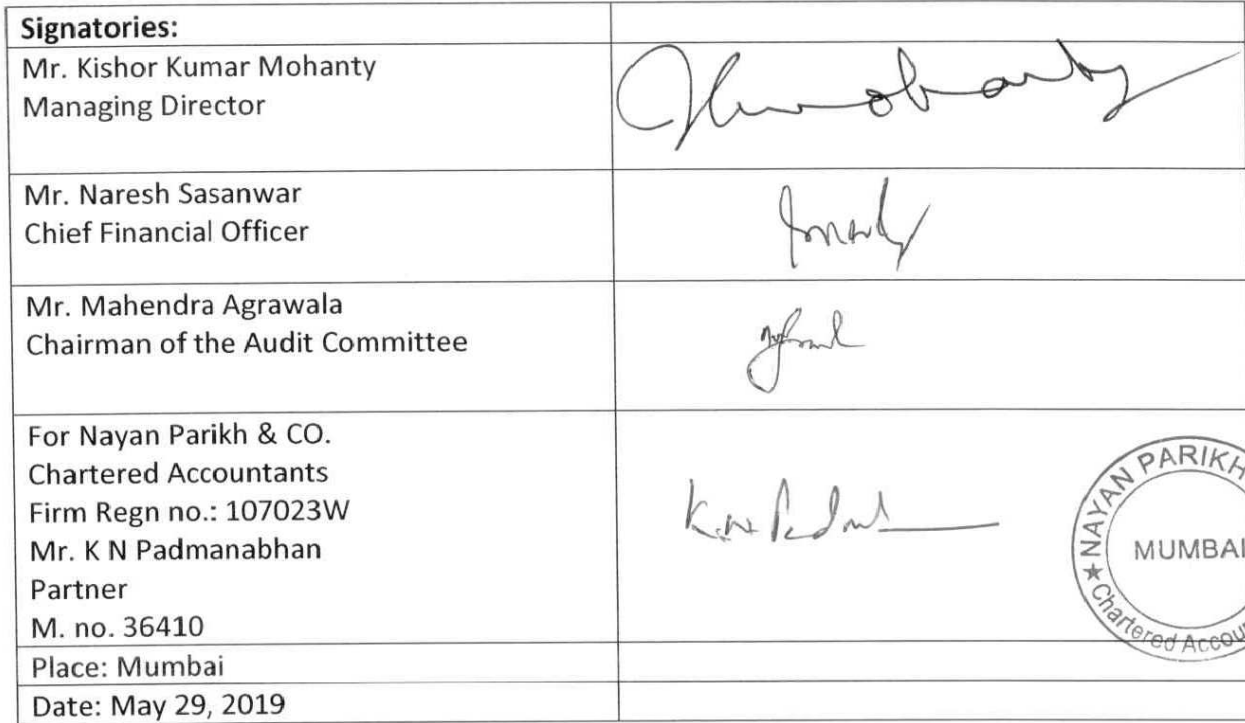 Signatories:
Mr. Kishor Kumar Mohanty
Managing Director
Mr. Naresh Sasanwar
Chief Financial Officer
Mr. Mahendra Agrawala
Chairman of the Audit Committee
For Nayan Parikh & CO.
Chartered Accountants
Firm Regn no.: 107023W
Mr. K N Padmanabhan
Partner
M. no. 36410
K.N. Padm
NAYAN PARIKH
MUMBAI
★ Chartered Accou
Place: Mumbai
Date: May 29, 2019